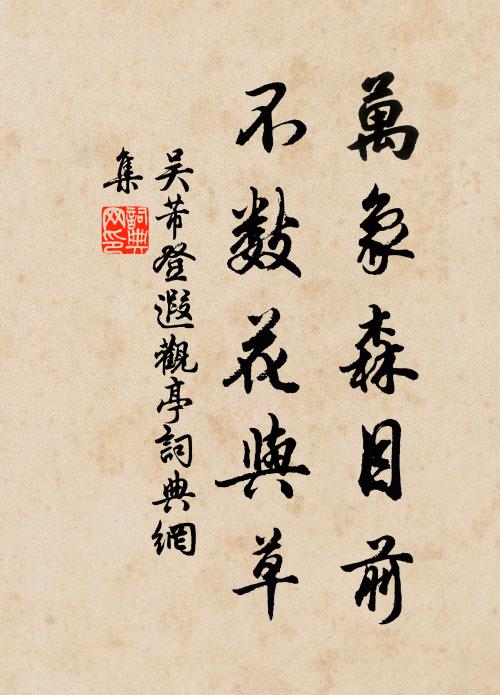 萬象森目前
不数花與草
吴芾登遐觀亭詞典網
集
詞典網印